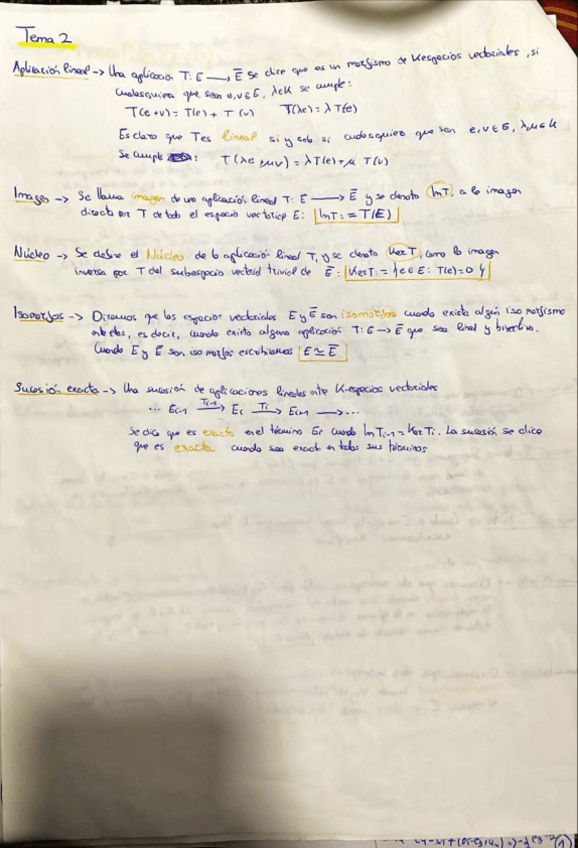 Tema 2
Aplicación lineal → Una aplicación T: E ⟶ Ē se dice que es un morfismo de K-espacios vectoriales, si
cualesquiera que sean e,v∈E, λ∈K se cumple:
T(e+v) = T(e) + T(v) T(λe) = λT(e)
Es claro que T es lineal si y solo si cualesquiera que sean e,v∈E, λ,μ∈K
Se cumple : T(λe+μv) = λT(e)+μ T(v)
Imagen → Se llama imagen de una aplicación lineal T: E ⟶ Ē y se denota ImT, a la imagen
directa por T de todo el espacio vectorial E: ImT := T(E)
Núcleo → Se define el Núcleo de la aplicación lineal T, y se denota KerT, como la imagen
inversa por T del subespacio vectorial trivial de Ē: KerT := {e∈E: T(e)=0}
Isomorfos → Diremos que los espacios vectoriales E y Ē son isomorfos cuando exista algún isomorfismo
entre ellos, es decir, cuando exista alguna aplicación T: E → Ē que sea lineal y biyectiva.
Cuando E y Ē son isomorfos escribiremos E ≃ Ē
Sucesión exacta → Una sucesión de aplicaciones lineales entre K-espacios vectoriales
... Ei-1 —Ti-1→ Ei —Ti→ Ei+1 ⟶ ...
se dice que es exacta en el término Ei cuando ImTi-1 = KerTi. La sucesión se dice
que es exacta cuando sea exacta en todos sus términos